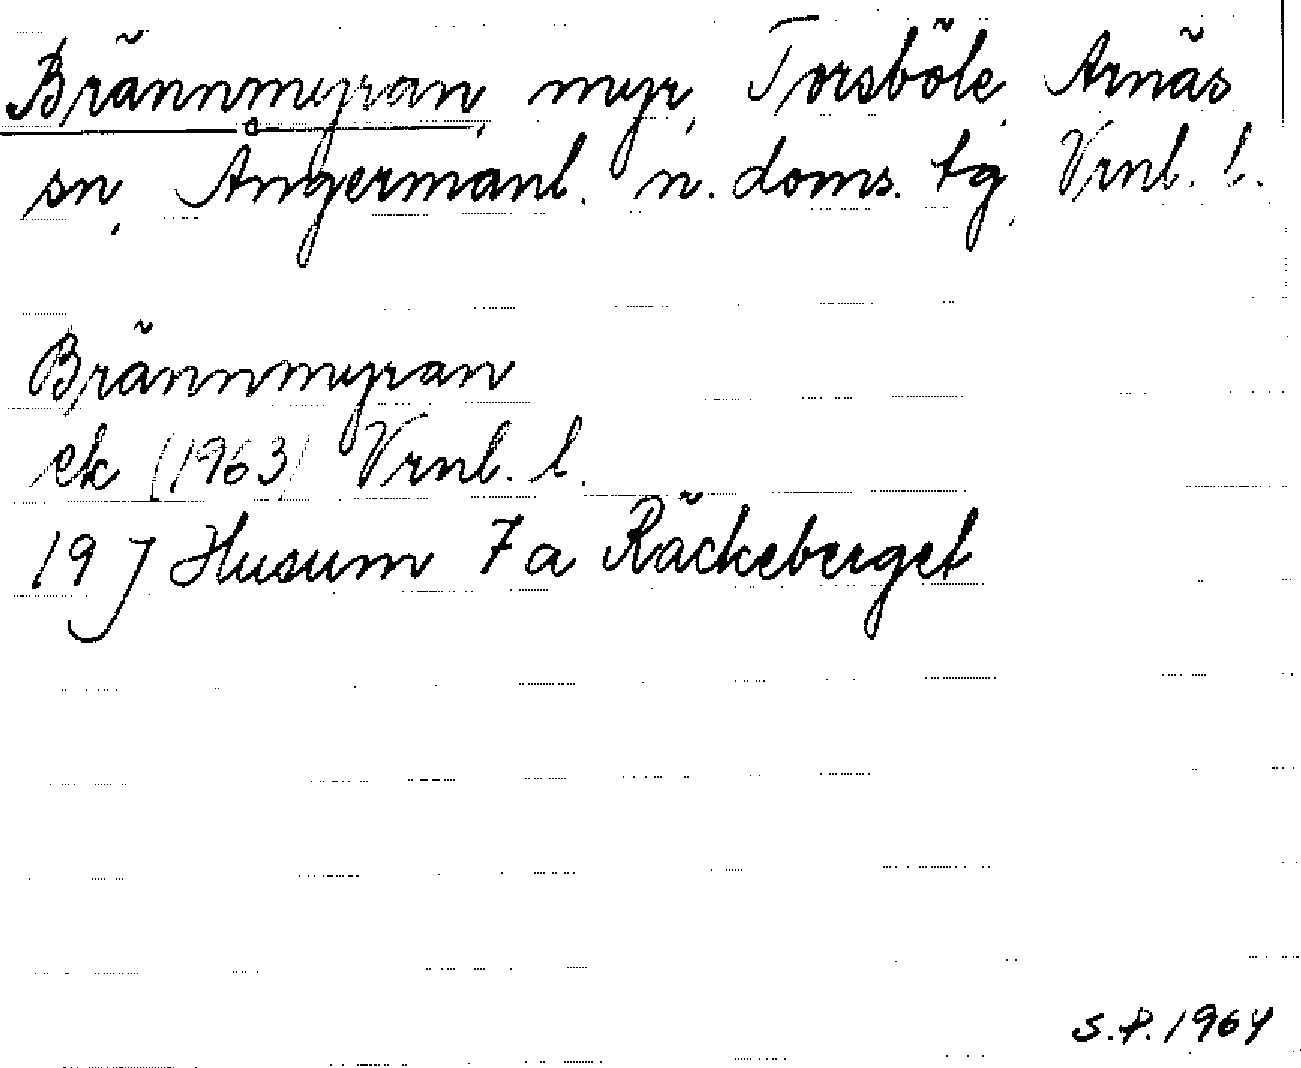 Brännmyran, myr, Torsböle, Arnäs
sn, Ångermanl. n. doms. tg, Vrnl. l.
Brännmyran
ek (1963) Vrnl. l.
19 J Husum 7 a Räckeberget
S.P. 1964